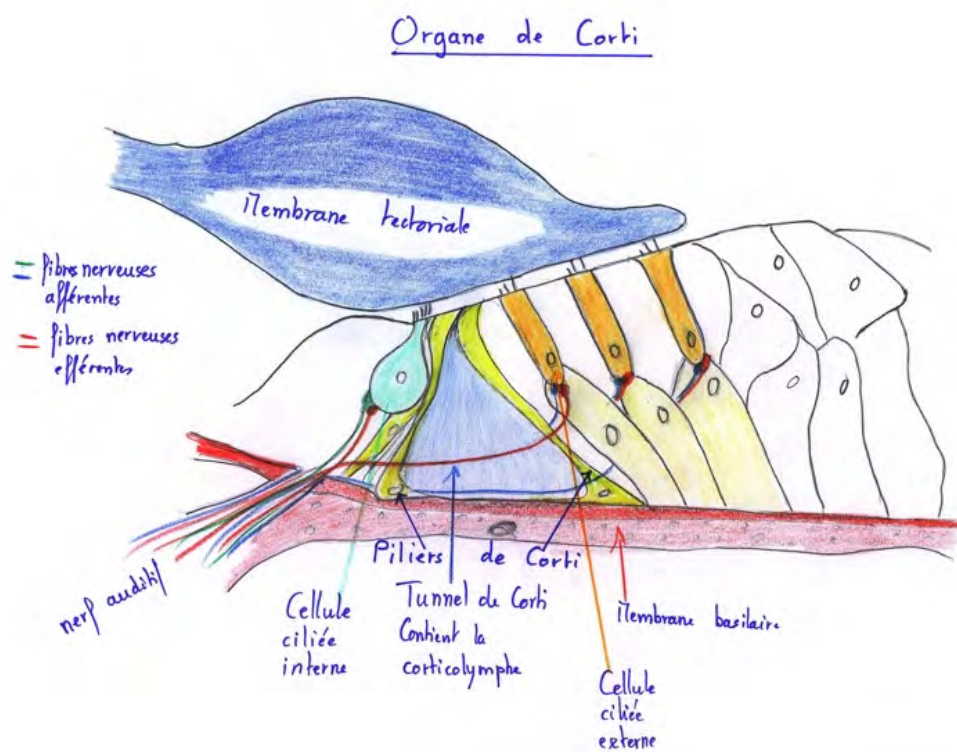 Organe de Corti
Membrane tectoriale
fibres nerveuses
afférentes
fibres nerveuses
efférentes
nerf auditif
Cellule
ciliée
interne
Piliers de Corti
Tunnel de Corti
Contient la
corticolymphe
Membrane basilaire
Cellule
ciliée
externe